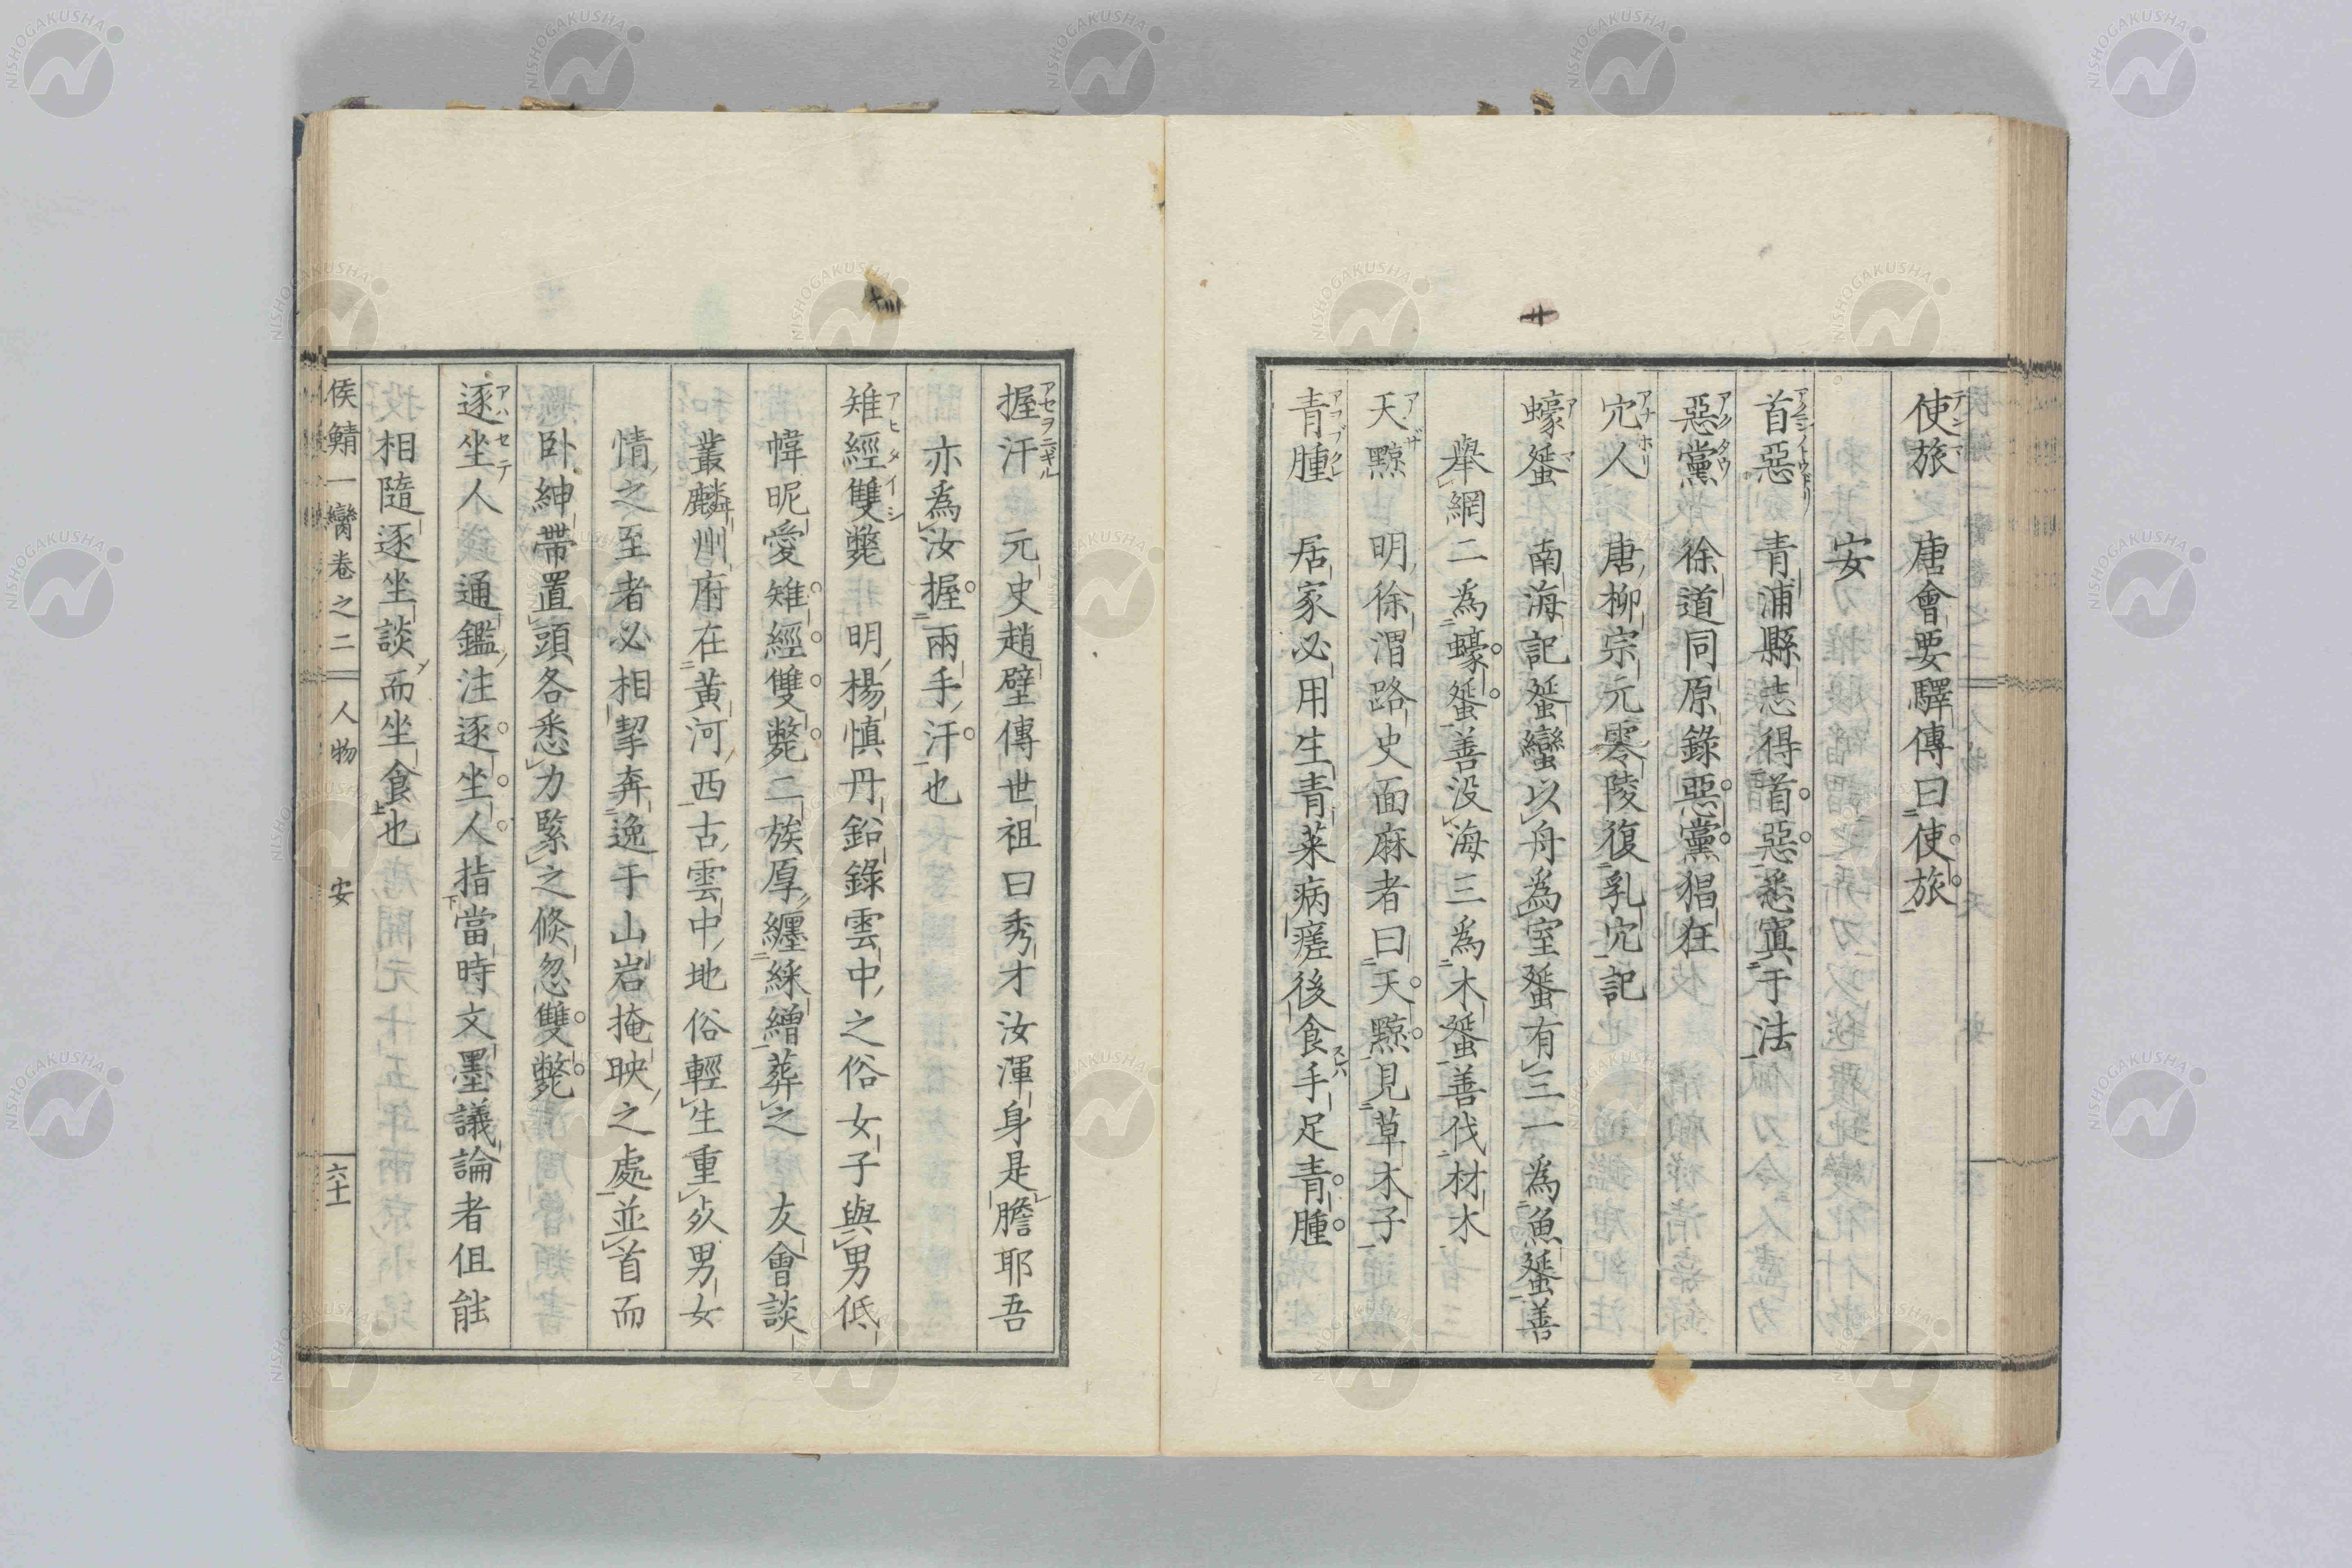 使旅　唐會要驛傳曰使旅
安
首惡　青浦縣志得首惡悉寘于法
惡黨　徐道同原錄惡黨猖狂
穴人　唐柳宗元零陵復乳穴記
蠔蜑　南海記蜑蠻以舟為室蜑有三一為魚蜑善
舉網二為蠔蜑善没海三為木蜑善伐材木
天黥　明徐渭路史面麻者曰天黥見草木子
青腫　居家必用生青菜病瘥後食手足青腫
握汗　元史趙璧傳世祖曰秀才汝渾身是膽耶吾
亦為汝握兩手汗也
雉經雙斃　明楊慎丹鉛錄雲中之俗女子與男低
幃昵愛雉經雙斃二族厚纏綵繒葬之　友會談
叢麟州府在黃河西古雲中地俗輕生重死男女
情之至者必相挈奔逸于山岩掩映之處並首而
卧紳帶置頭各悉力緊之倐忽雙斃
逐坐人　通鑑注逐坐人指當時文墨議論者但能
相隨逐坐談而坐食也
侯鯖一臠卷之二　人物　安　六十一
十
NISHOGAKUSHA